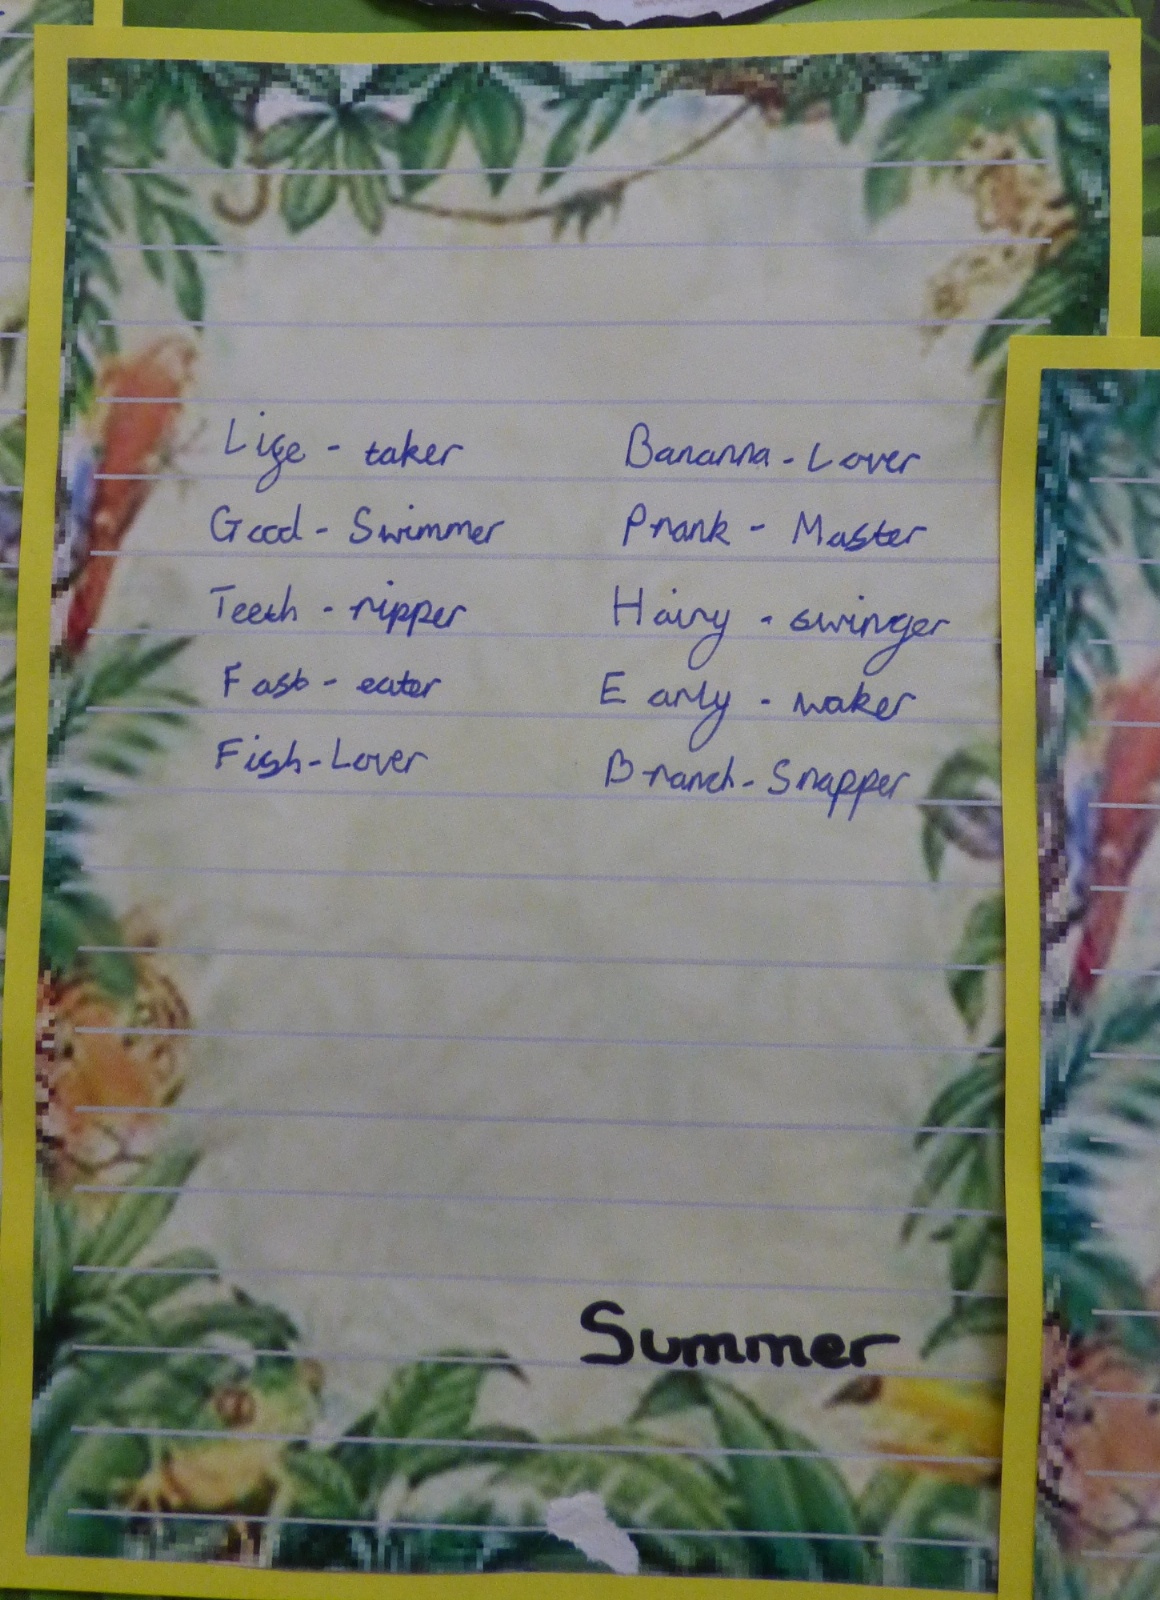 Life - taker
Good - Swimmer
Teeth - ripper
Fast - eater
Fish-Lover
Bananna - Lover
Prank - Master
Hairy - swinger
Early - waker
Branch- Snapper
Summer